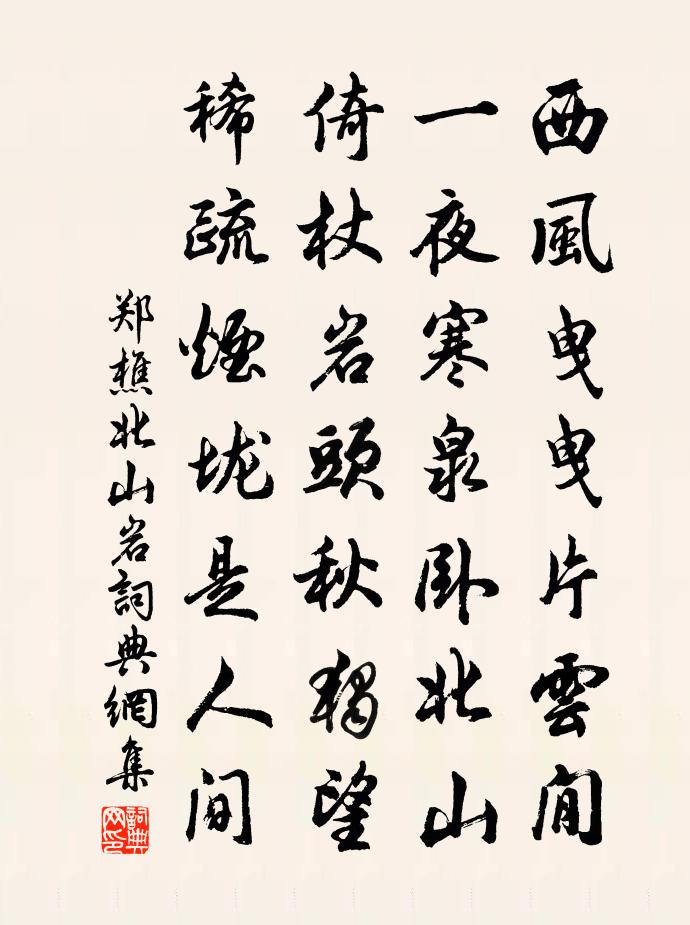 西風曳曳片雲閒
一夜寒泉卧北山
倚杖岩頭秋獨望
稀疏煙垅是人间
郑樵北山岩詞典網集
詞典網印